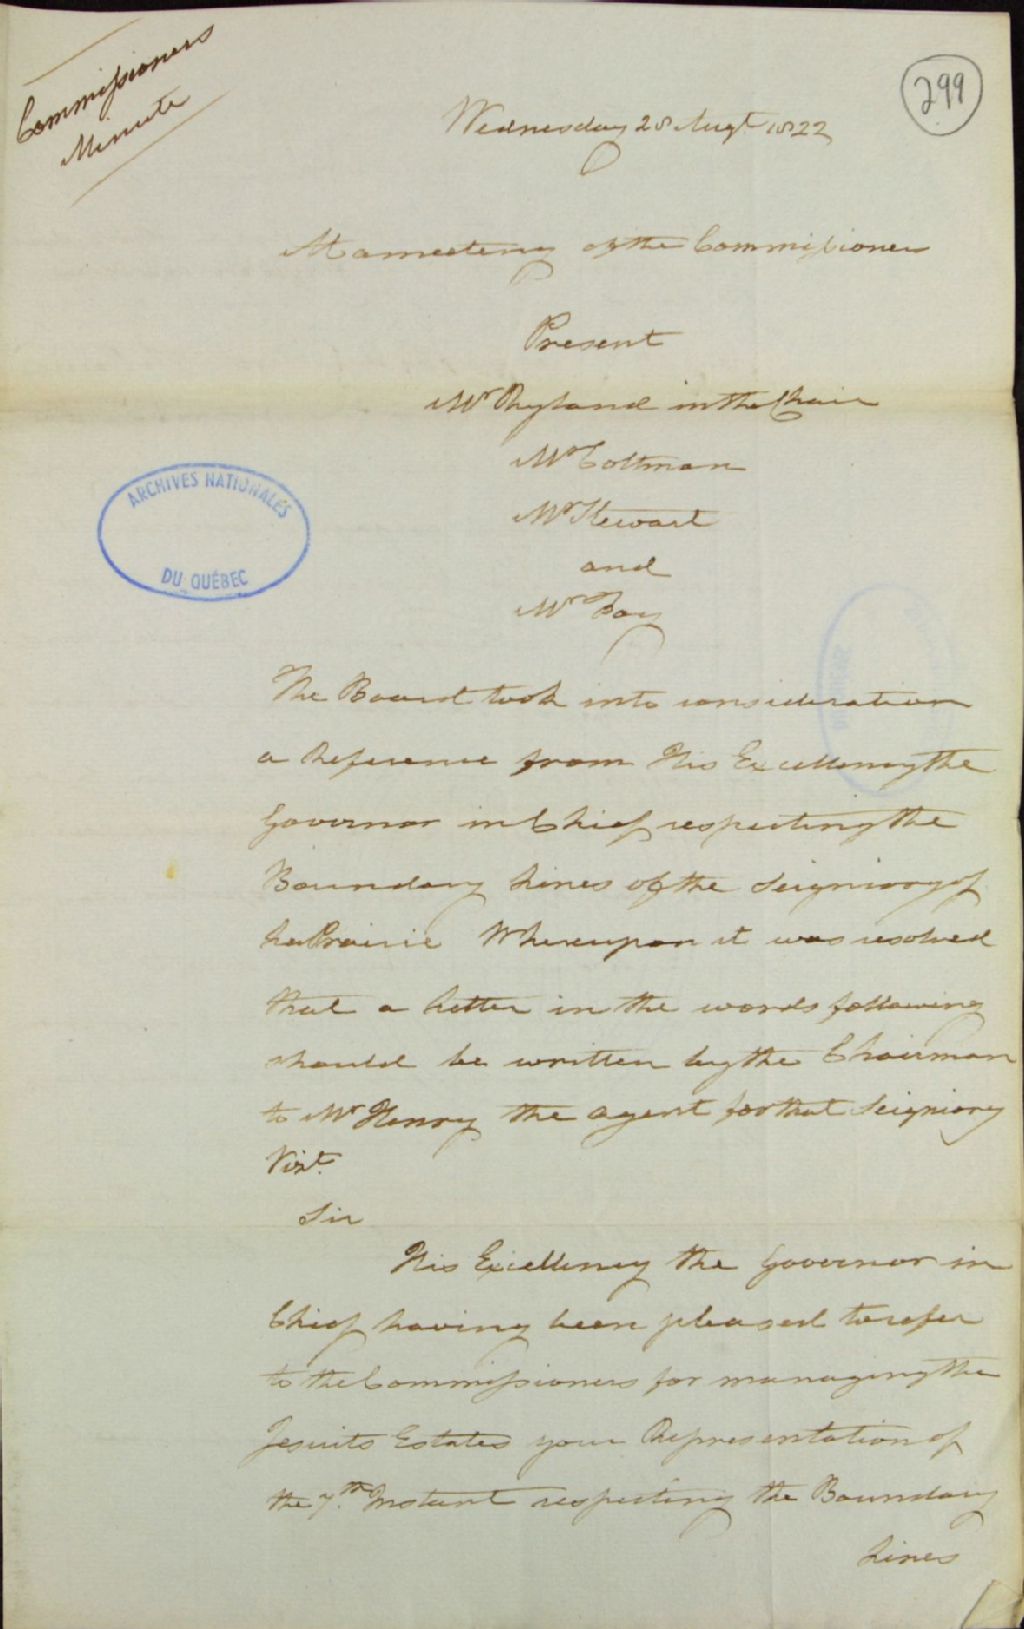 Commissioners
Minute
299
Wednesday 28 Augt 1822
At a meeting of the Commissioners
Present
Mr Ryland in the Chair
Mr Coltman
Mr Stewart
and
Mr Foy
ARCHIVES NATIONALES
DU QUÉBEC
The Board took into consideration
a Reference from His Excellency the
Governor in Chief respecting the
Boundary Lines of the Seigniory of
La Prairie Whereupon it was resolved
that a Letter in the words following
should be written by the Chairman
to Mr Henry the Agent for that Seigniory
Vizt.
Sir
His Excellency the Governor in
Chief having been pleased to refer
to the Commissioners for managing the
Jesuits Estates your Representation of
the 7.th Instant respecting the Boundary
Lines